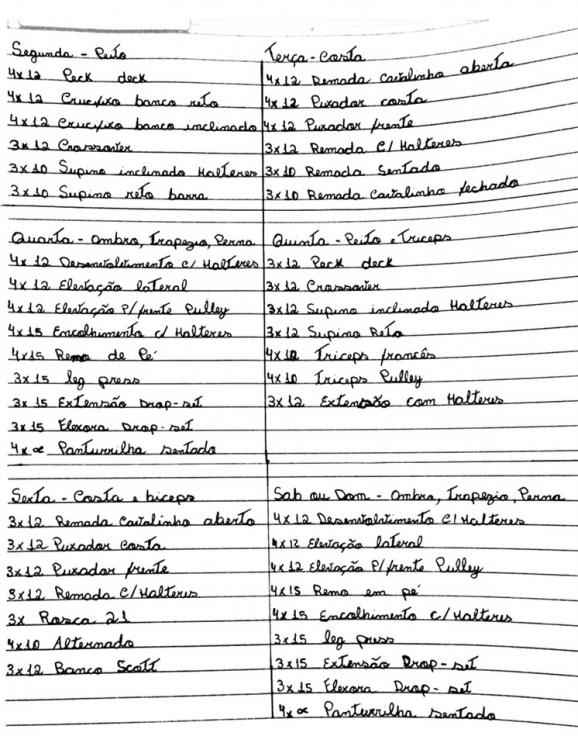 Segunda - Peito
4x12 Peck deck
4x12 Crucifixo banco reto
4x12 Crucifixo banco inclinado
3x12 Crossover
3x10 Supino inclinado Halteres
3x10 Supino reto barra
Terça - Costa
4x12 Remada Cavalinho aberta
4x12 Puxador costa
4x12 Puxador frente
3x12 Remada C/ Halteres
3x10 Remada Sentado
3x10 Remada Cavalinho fechado
Quarta - Ombro, Trapezio, Perna
4x12 Desenvolvimento c/ Halteres
4x12 Elevação lateral
4x12 Elevação P/ frente Pulley
4x15 Encolhimento c/ Halteres
4x15 Remo de Pé
3x15 leg press
3x15 Extensão Drap-set
3x15 Flexora Drap-set
4x ∝ Panturrilha sentado
Quinta - Peito e Triceps
3x12 Peck deck
3x12 Crossover
3x12 Supino inclinado Halteres
3x12 Supino Reto
4x10 Triceps francês
4x10 Triceps Pulley
3x12 Extensão com Halteres
Sexta - Costa e biceps
3x12 Remada Cavalinho aberto
3x12 Puxador Costa
3x12 Puxador frente
3x12 Remada C/ Halteres
3x Rosca 21
4x10 Alternado
3x12 Banco Scott
Sab ou Dom - Ombro, Trapezio, Perna
4x12 Desenvolvimento C/ Halteres
4x12 Elevação lateral
4x12 Elevação P/ frente Pulley
4x15 Remo em pé
4x15 Encolhimento c/ Halteres
3x15 leg press
3x15 Extensão Drap-set
3x15 Flexora Drap-set
4x ∝ Panturrilha sentado